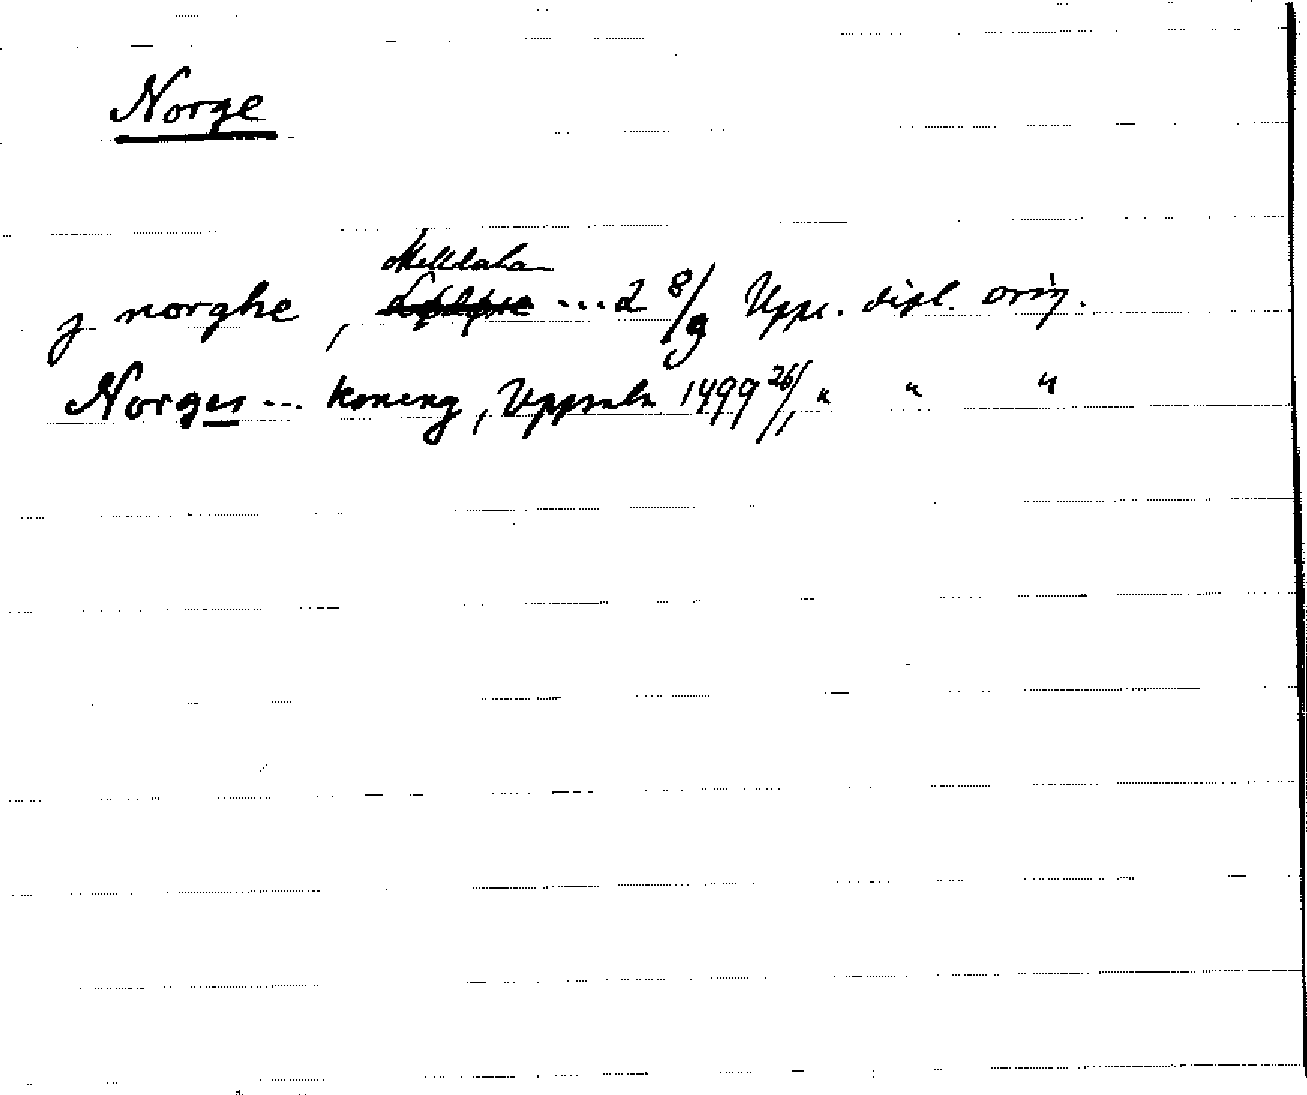 Norge
j norghe, ... 2 8/9 Upps. dipl. orig.
Norges ... koneng, Uppsala 1499 26/1 " " "